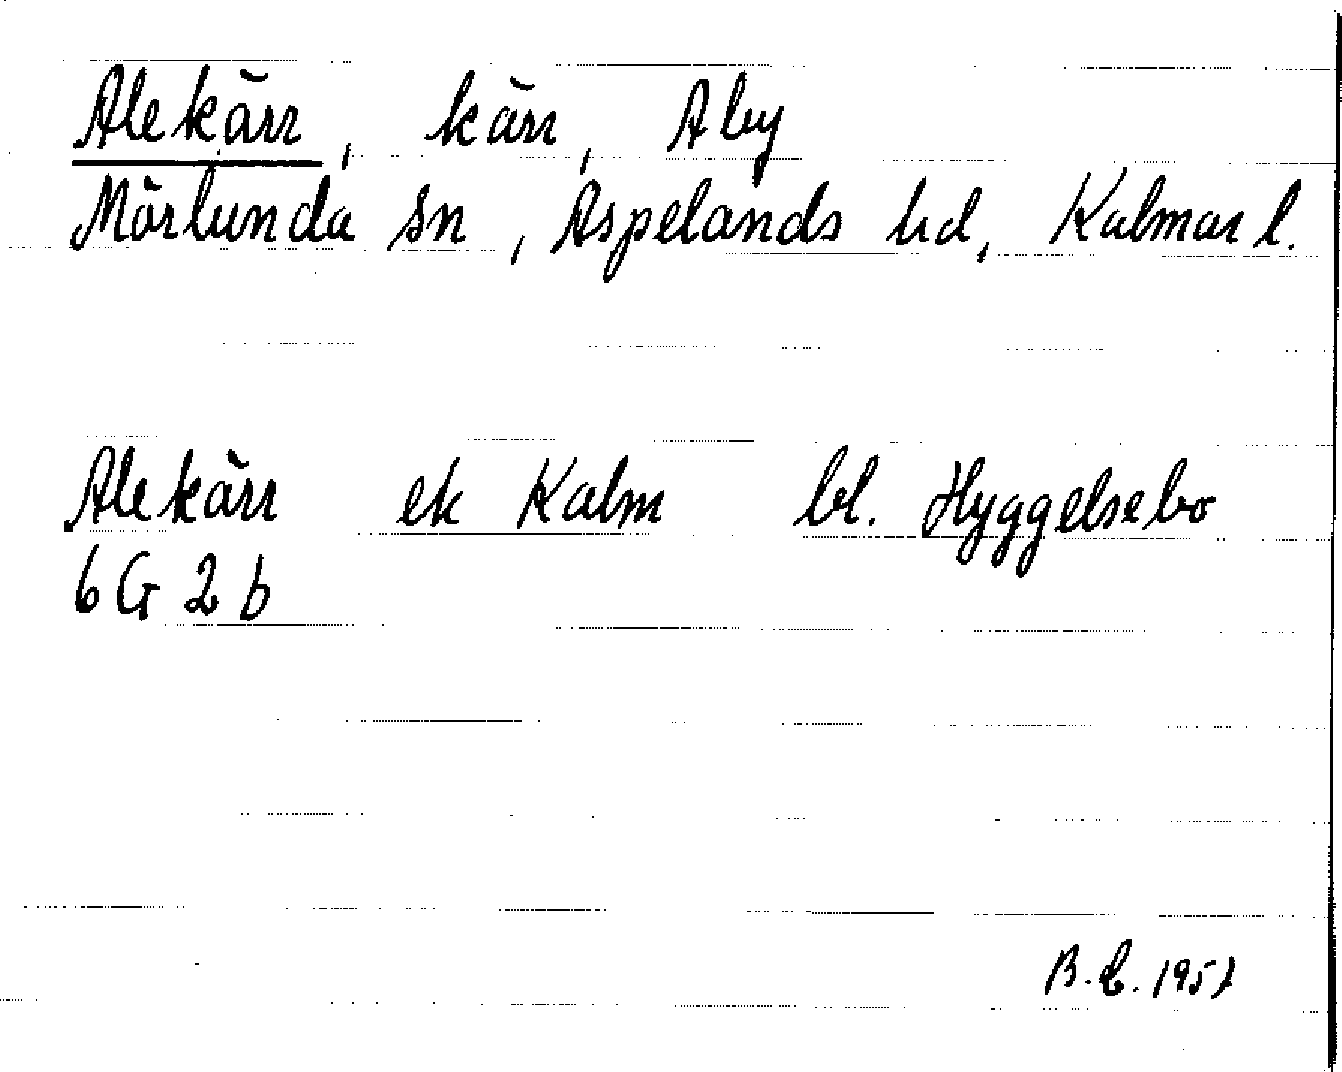 Alekärr, kärr, Åby
Mörlunda sn, Aspelands hd, Kalmar l.
Alekärr ek Kalm bl. Hyggelsebo
6 G 2 b
B. E. 1957